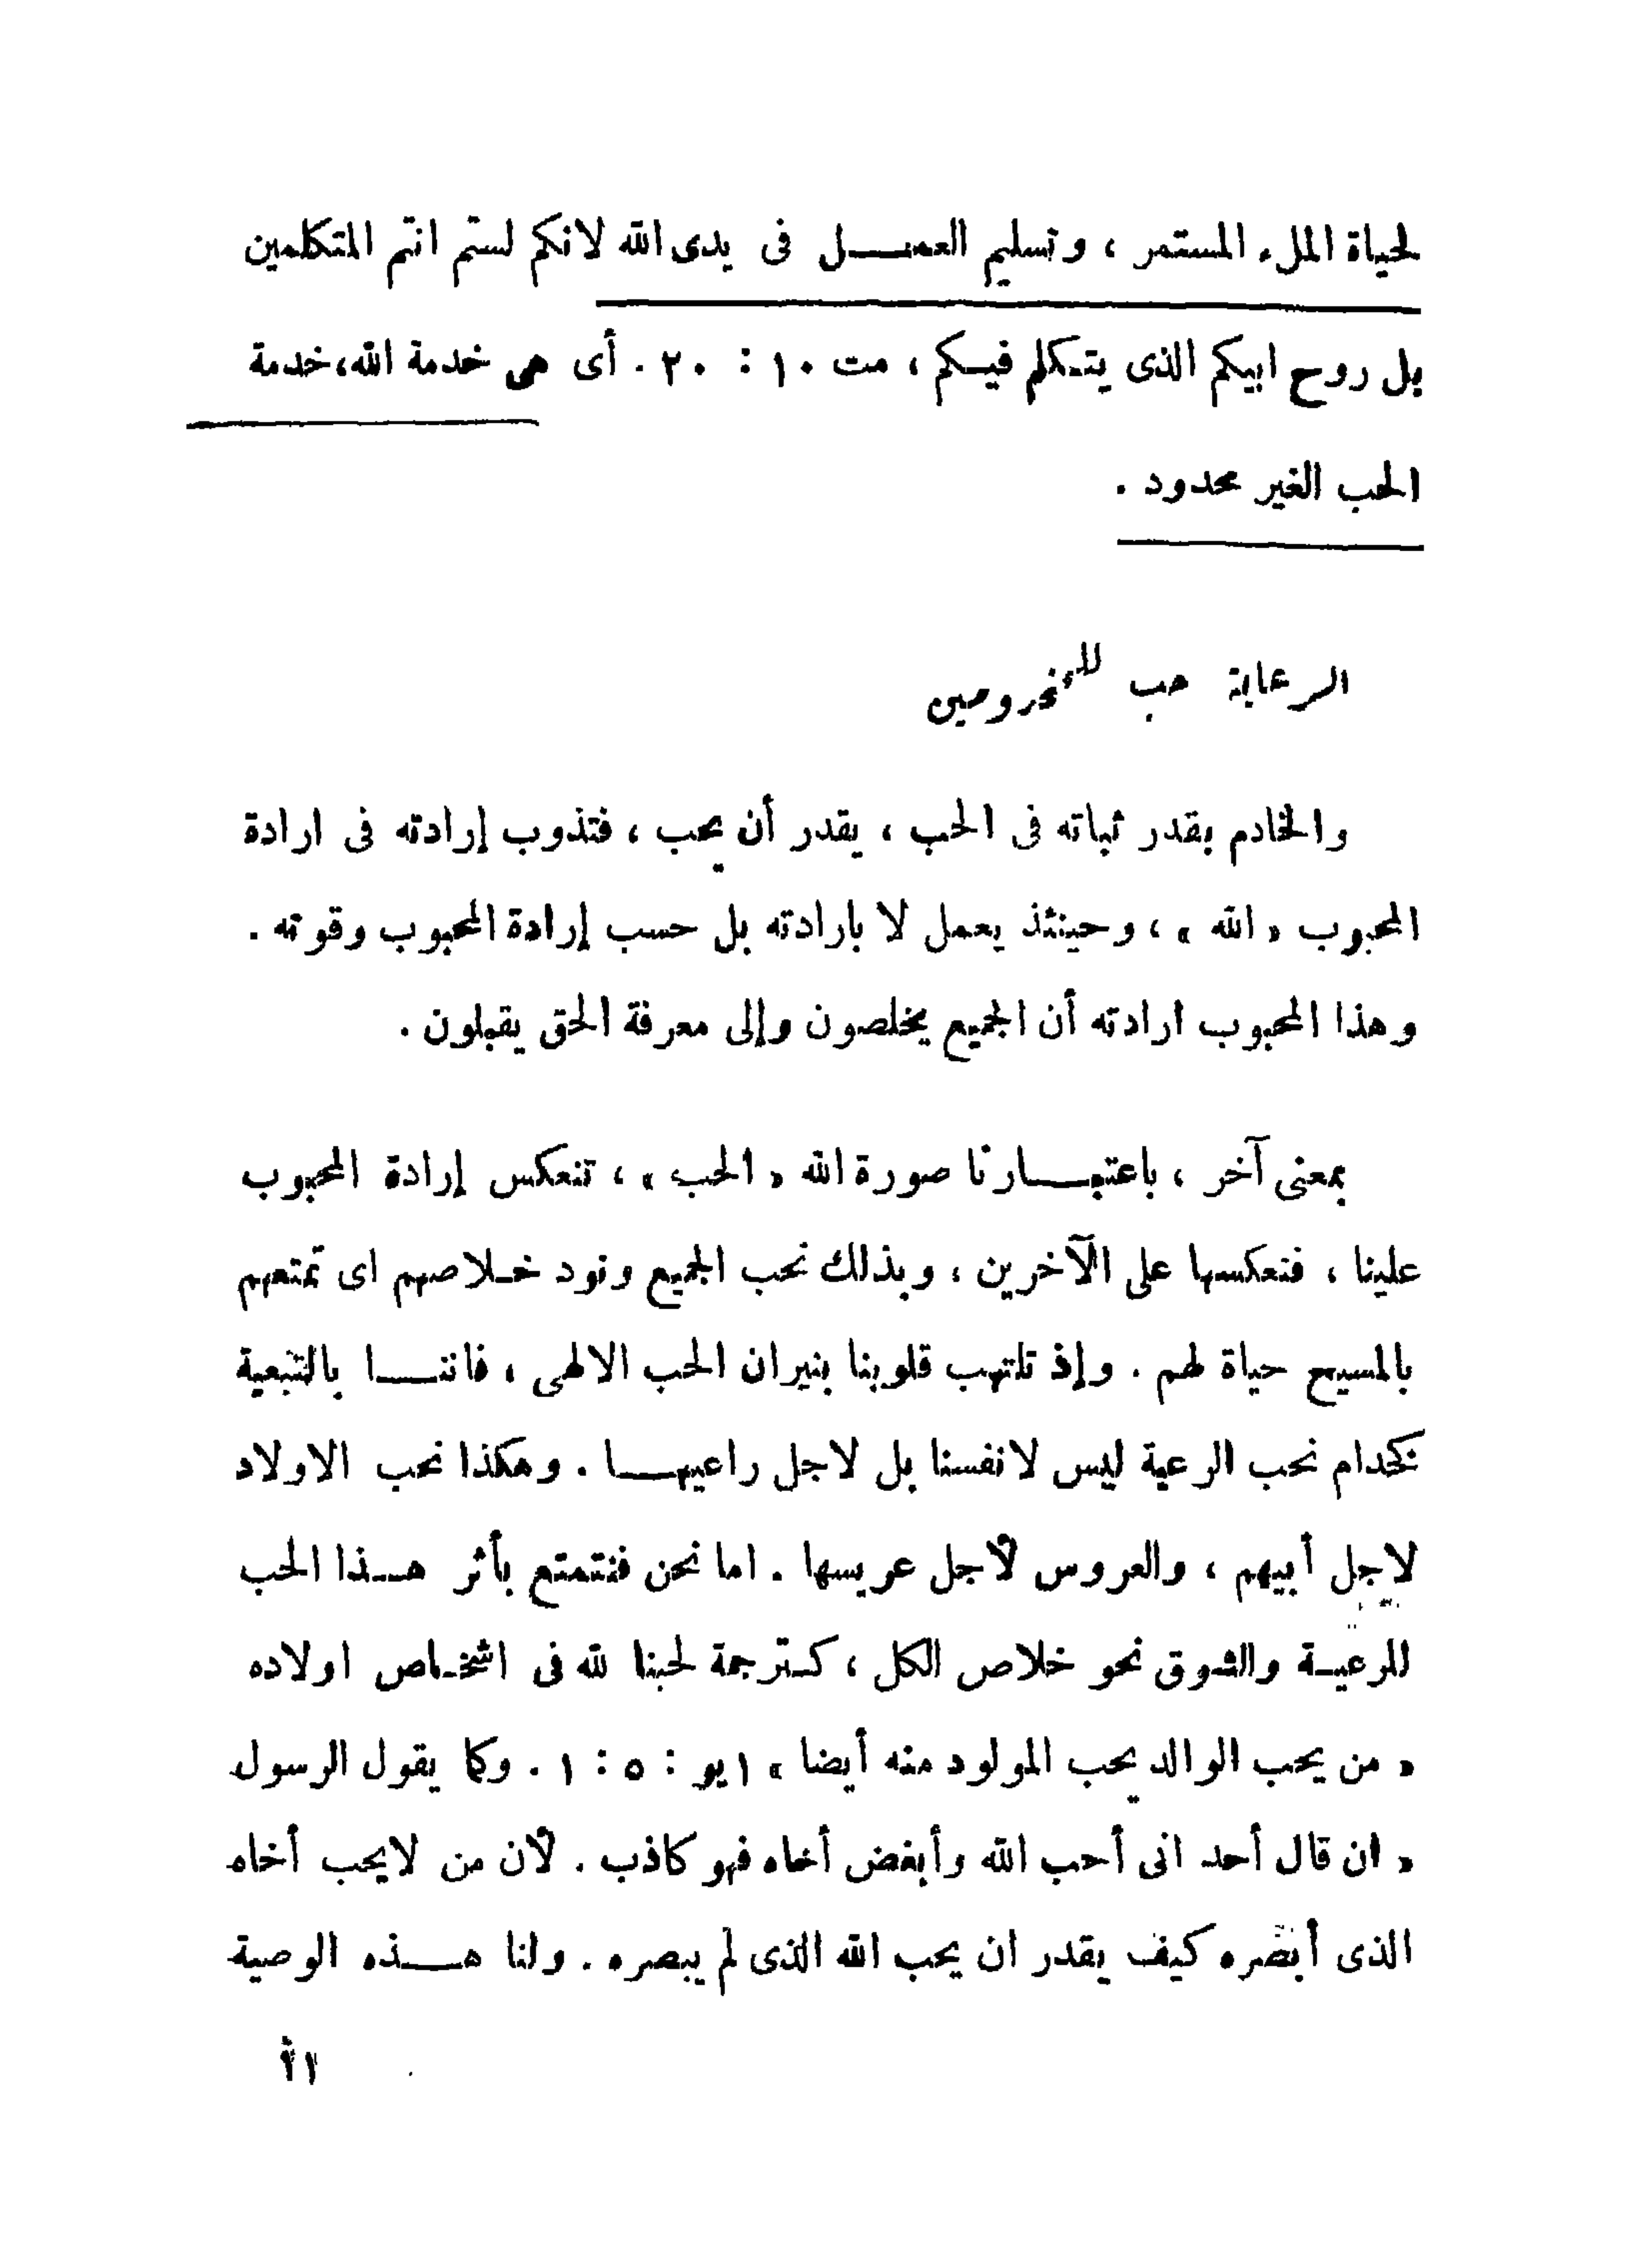 لحياة الملء المستمر ، وتسليم العمل فى يدى الله لانكم لستم انتم المتكلمين
بل روح ابيكم الذى يتكلم فيكم ، مت ١٠ : ٢٠ . أى هى خدمة الله، خدمة
الحب الغير محدود .
الرعاية حب للمخدومين
والخادم بقدر ثباته فى الحب ، يقدر أن يحب ، فتذوب إرادته فى ارادة
المحبوب « الله » ، وحينئذ يعمل لا بارادته بل حسب إرادة المحبوب وقوته .
وهذا المحبوب ارادته أن الجميع يخلصون وإلى معرفة الحق يقبلون .
بمعنى آخر ، باعتبارنا صورة الله « الحب » ، تنعكس إرادة المحبوب
علينا ، فنعكسها على الآخرين ، وبذلك نحب الجميع ونود خلاصهم اى تمتعهم
بالمسيح حياة لهم . وإذ تلتهب قلوبنا بنيران الحب الالهى ، فاننا بالتبعية
كخدام نحب الرعية ليس لانفسنا بل لاجل راعيها . وهكذا نحب الاولاد
لاجل أبيهم ، والعروس لأجل عريسها . اما نحن فنتمتع بأثر هذا الحب
للرعية والشوق نحو خلاص الكل ، كترجمة لحبنا لله فى اشخاص اولاده
« من يحب الوالد يحب المولود منه أيضا » ١يو : ٥ : ١ . وكما يقول الرسول
« ان قال أحد انى أحب الله وأبغض أخاه فهو كاذب . لأن من لايحب أخاه
الذى أبصره كيف يقدر ان يحب الله الذى لم يبصره . ولنا هذه الوصية